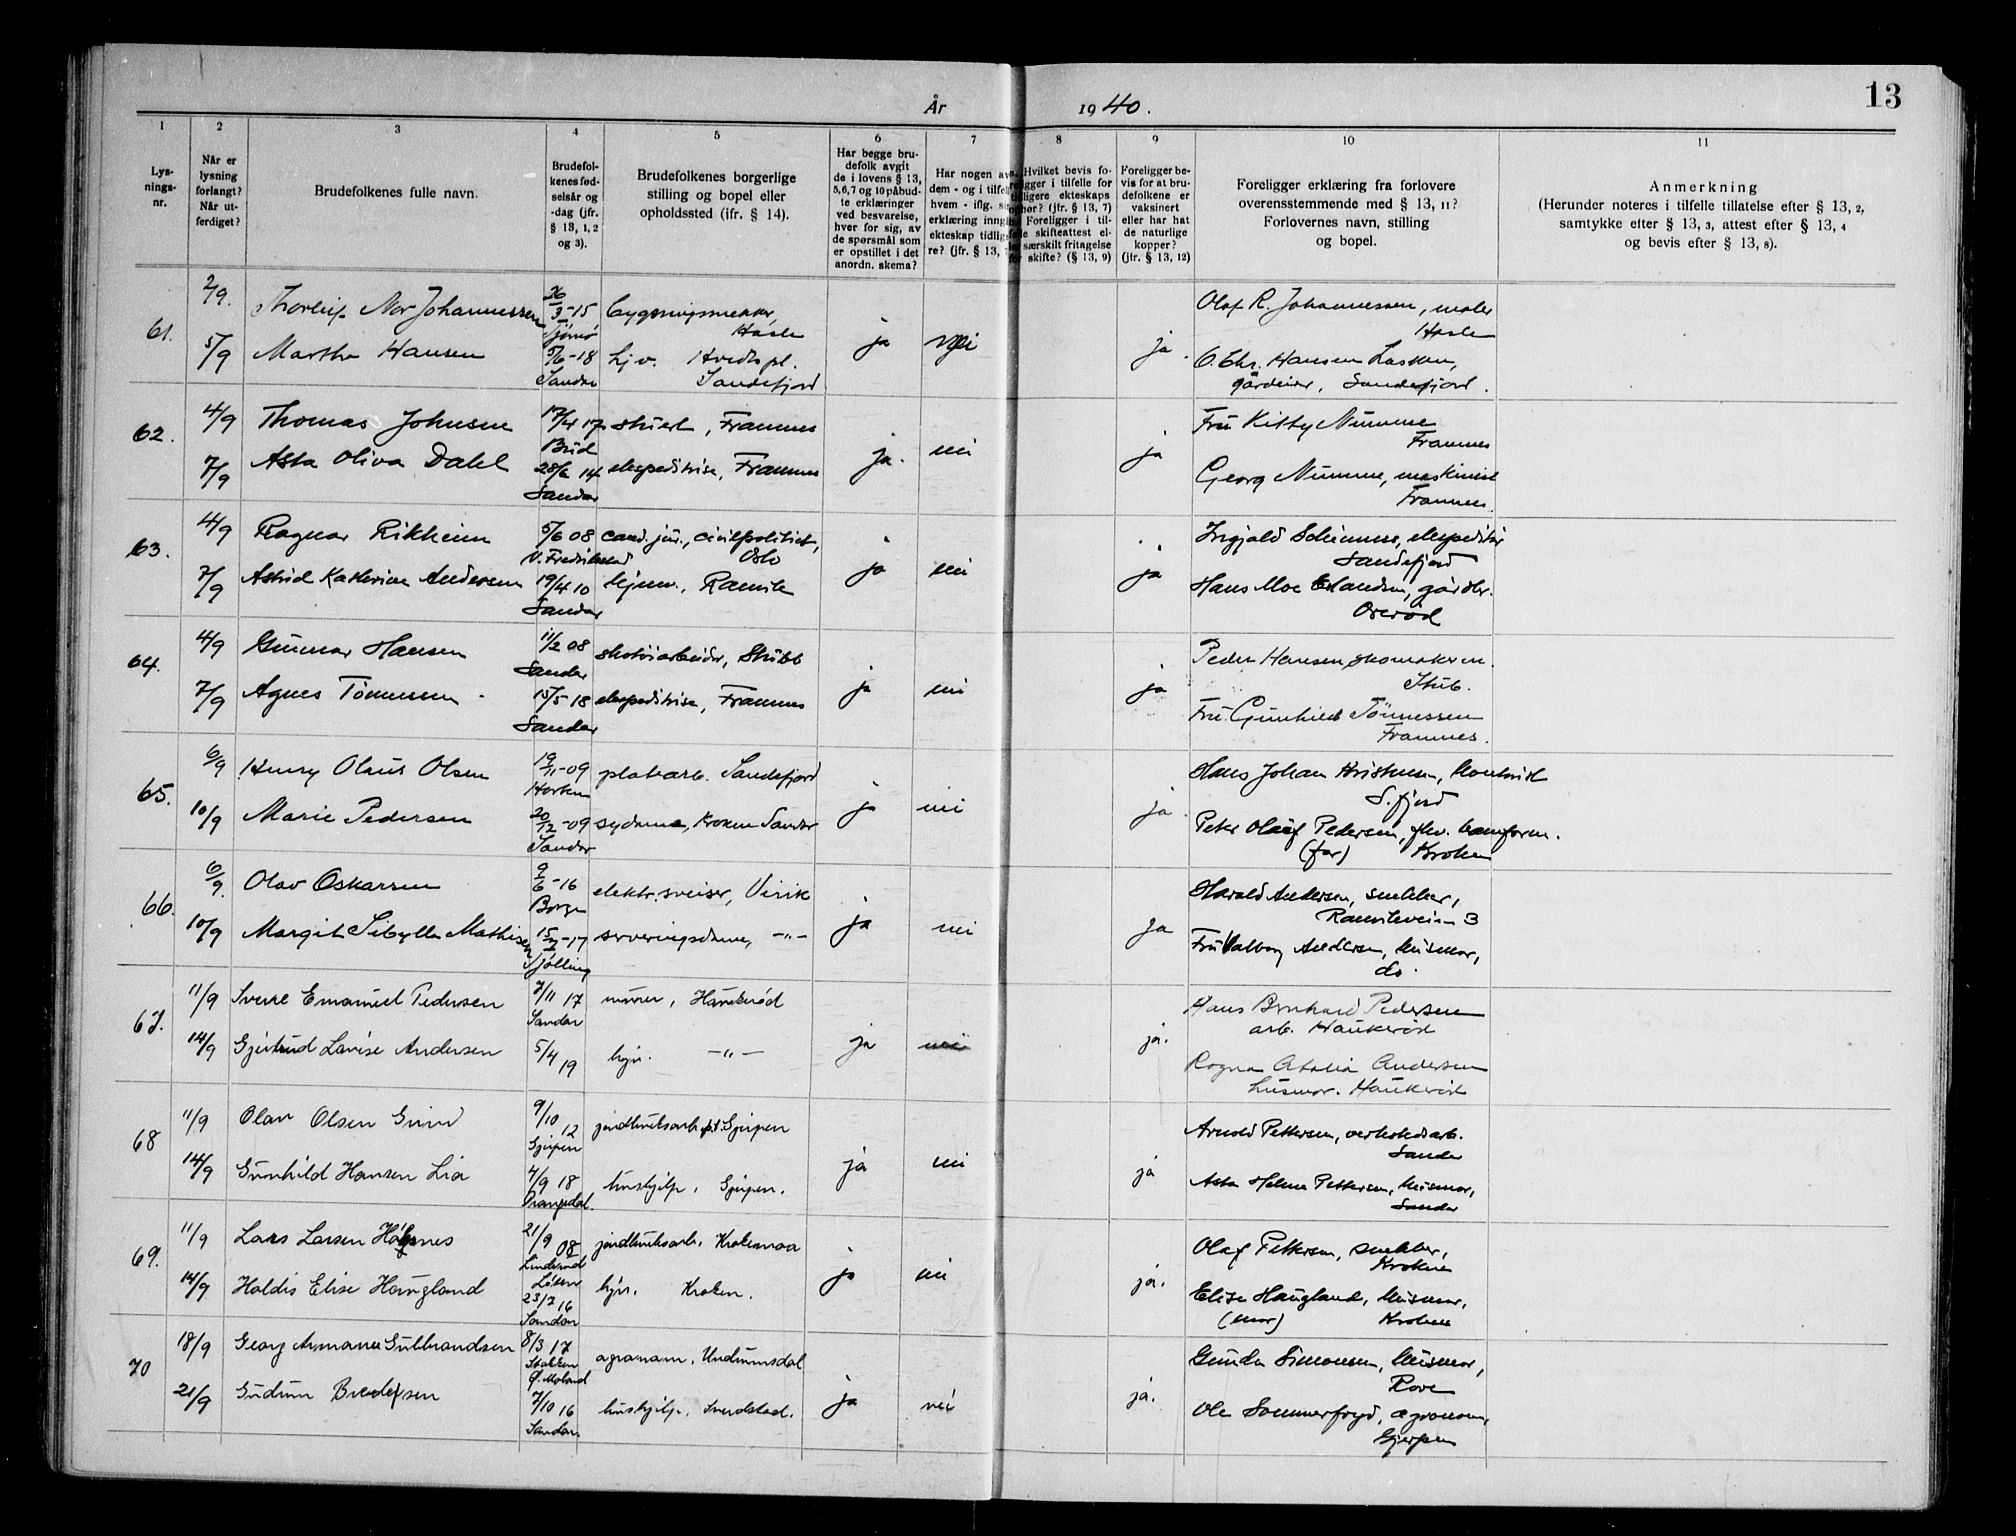 13
År 1940.
1 2 3 4 5 6 7 8 9 10 11
Lys-
nings-
nr.
Når er
lysning
forlangt?
Når ut-
ferdiget?
Brudefolkenes fulle navn.
Brudefol-
kenes fød-
selsår og
-dag (jfr.
§ 13, 1, 2
og 3).
Brudefolkenes borgerlige
stilling og bopel eller
opholdssted (ifr. § 14).
Har begge bru-
defolk avgit
de i lovens § 13,
5,6,7 og 10 påbud-
te erklæringer
ved besvarelse,
hver for sig, av
de spørsmål som
er opstillet i det
anordn. skema?
Har nogen av
dem - og i tilfel
hvem - iflg.
erklæring inngå
ekteskap tidlige
re? (jfr. § 13,
Hvilket bevis fo-
religger i tilfelle for
tidligere ekteskaps
ophør? (jfr. § 13, 7)
Foreligger i til-
felle skifteattest el-
ler særskilt fritagelse
for skifte? (§ 13, 9)
Foreligger be-
vis for at bru-
defolkene er
vaksinert
eller har hat
de naturlige
kopper?
(jfr. § 13, 12)
Foreligger erklæring fra forlovere
overensstemmende med § 13, 11?
Forlovernes navn, stilling
og bopel.
Anmerkning
(Herunder noteres i tilfelle tillatelse efter § 13, 2,
samtykke efter § 13, 3, attest efter § 13, 4
og bevis efter § 13, 8).
61. 2/9. Thorleif Nor Johannessen 26/3-15 bygningssnekker, Olaf R. Johannessen, maler
Hasle ja nei ja. Hasle
5/9 Martha Hansen 5/6-18 hj.v. Hvidts pl. O. Chr. Hansen
Sandar Sandefjord gårdeier, Sandefjord.
62. 4/9 Thomas Johnsen 17/4 17 stuert, Framnes Fru Kitty Numme
Bud ja. nei ja Framnes
7/9 Asta Oliva Dahl 28/6 14 ekspeditrise, Framnes Georg Numme, maskinist
Sandar Framnes
63. 4/9 Ragnar Rikheim 5/6 08 cand. jur., civilpolitiet, Ingjald ekspeditør
V. Fredrikstad Oslo ja nei ja Sandefjord
7/9 Astrid Kathrine Andersen 19/4 10 hjemv., Ranvik Hans Moe gårdbr.
Sandar
64. 4/9 Gunnar Hansen 11/2 08 skotøiarbeider, Stubb Peder Hansen, skomakerm.
Sandar ja nei ja Stub.
7/9 Agnes Tönnessen 15/5 18 ekspeditrise, Framnes Fru Gunhild Tönnessen
Sandar Framnes.
65. 6/9 Henry Olaus Olsen 19/11-09 platearb. Sandefjord Hans Johan Kristensen,
Horten ja nei ja. S.fjord
10/9 Marie Pedersen 20/12-09 sydame, Kroken Sandar Peter Olaf Pedersen,
Sandar (far) Kroken
66. 6/9. Olav Oskarsen 9/6-16 elektr. sveiser, Virik Harald Andersen, snekker,
Borge ja nei ja Ranvikveien 3
10/9 Margit Sibylla Mathisen 15/2-17 serveringsdame, -"- Fru Valborg Andersen, husmor,
Tjølling do.
67. 11/9 Sverre Emanuel Pedersen 7/11 17 murer, Haukerød Hans Bernhard Pedersen
Sandar ja nei ja. arb. Haukerød
14/9 Gjertrud Lovise Andersen 5/4 19 hjv. -"- Ragna Atalia Andersen
husmor. Haukerød
68 11/9 Olav Olsen Grini 9/10 12 jordbruksarb. p.t. Gjerpen Arnold Pettersen, verkstedsarb.
Gjerpen ja nei ja Sandar
14/9 Gunhild Hansen Lia 4/9 18 hushjelp, Gjerpen. Asta Helene Pettersen, husmor,
Drangedal. Sandar
69. 11/9 Lars Larsen Høgnes 21/9 08 jordbruksarb. Krokemoa Olaf Pettersen, snekker,
ja nei ja. Kroken
14/9 Haldis Elise Haugland 23/2 16 hjv. Kroken. Elise Haugland, husmor,
Sandar (mor) Kroken
70 18/9 Georg Armann Gulbrandsen 8/3 17 agronom, Undrumsdal Gunda Simonsen, husmor,
Stokken
Ø. Moland ja nei ja. Rove
21/9 Gudrun Bredesen 7/10 16 hushjelp, Svendstad. Ole Sommerfryd, agronom,
Sandar. Gjerpen